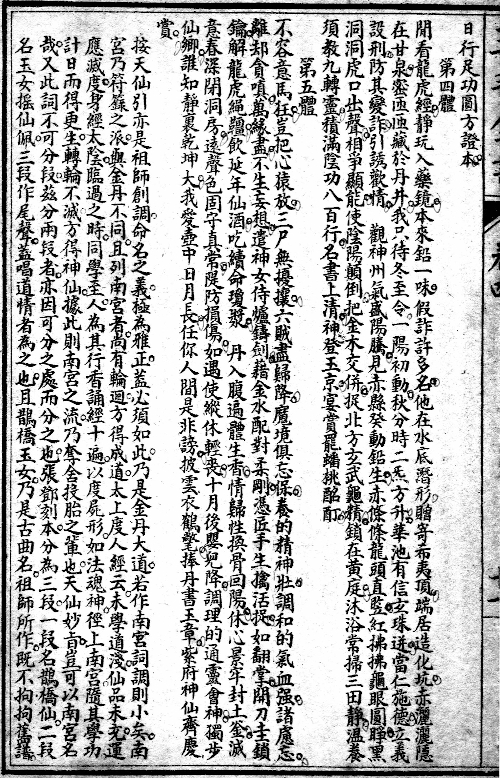 日行足功圓方證本
第四體
閒看龍虎經靜玩入藥鏡本來鉛一味假詐許多名他在水底潛形贈奇布夷頂踹居造化坑赤灑灑隱
在甘泉盤匝匝藏於丹井我只待冬至令一陽初動秋分時二炁方升華池有信玄珠迸當仁施德立義
設刑防其變詐引誘歡情 觀神州氣盛陽騰見赤縣癸動鉛生赤條條龍頭直豎紅拂拂龜眼圓睜黑
洞洞虎口出聲相爭顯能使陰陽顛倒把金木交併捉北方玄武龜精鎖在黃庭沐浴常掃三田靜溫養
須教九轉靈積滿陰功八百行名書上清神登玉京宴賞罷蟠挑酩酊
第五體
不容意馬狂豈把心猿放三尸無擾攘六賊盡歸降魔境俱忘保養的精神壯調和的氣血强諸慮忘
離却貪嗔萬緣盡不生妄想遣神女侍爐鑄劍藉金水配對柔剛憑匠手生擒活捉如翻掌開刀圭鎖
鑰解龍虎繩韁飲延年仙酒吃續命瓊漿 丹入腹遍體生香情歸性換骨回陽休心景年封土釜滅
意春深閉洞房遠聲色固守真常隄防損傷如遇使縱休輕喪十月後嬰兒降調理的通靈會神獨步
仙鄉誰知靜裏乾坤大我愛壺中日月長任你人間是非謗披雲衣鶴氅捧丹書玉章紫府神仙齊慶
賞
按天仙引亦是祖師創調命名之義極為雅正蓋必須如此乃是金丹大道若作南宮詞調則小矣南
宮乃符籙之派與金丹不同且列南宮者尚有輪迴方得成道太上度人經云未學道淺仙品未充運
應滅度身經太陰臨過之時同學至人為其行香誦經十遍以度屍形如法魂神徑上南宮隨其學功
計日而得更生轉輪不滅方得神仙據此則南宮之流乃奪舍投胎之輩也天仙妙音豈可以南宮名
哉又此詞不可分段茲分兩段者亦因可分之處而分之也張鄧刻本分為三段一段名鵲橋仙二段
名玉女搖仙佩三段作尾聲蓋唱道情者為之也且鵲橋玉女乃是古曲名祖師所作既不拘拘舊譜